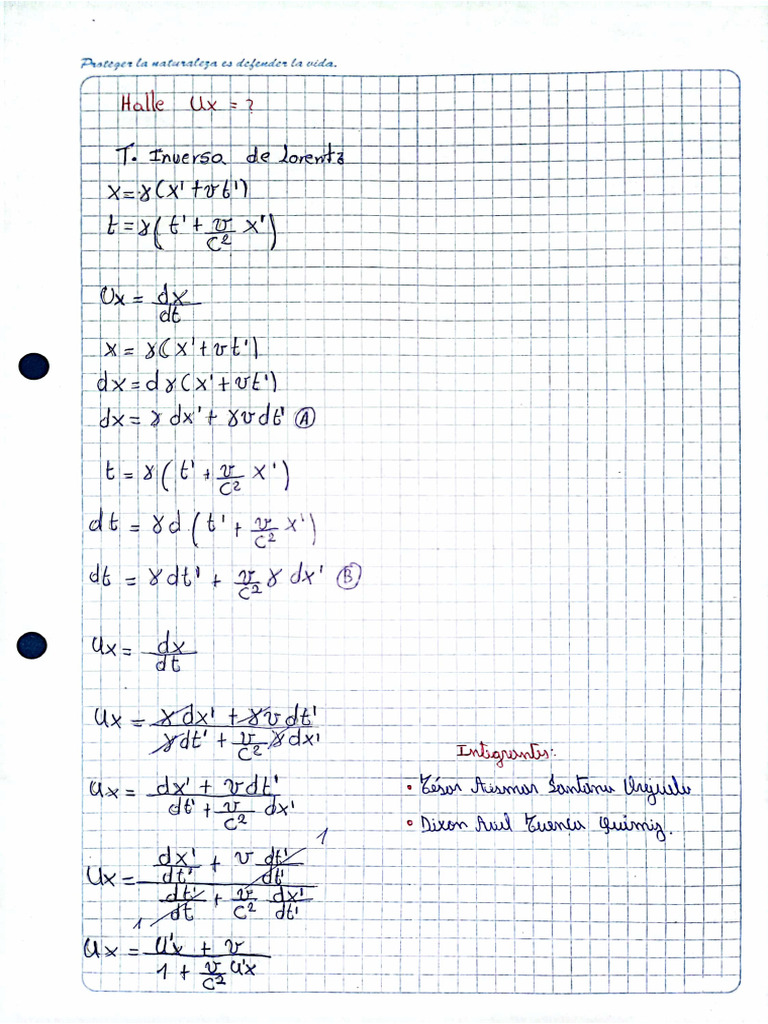 Proteger la naturaleza es defender la vida.
Halle Ux = ?
T. Inversa de Lorentz
x = γ(x' + vt')
t = γ(t' + v/c² x')
Ux = dx/dt
x = γ(x' + vt')
dx = dγ(x' + vt')
dx = γ dx' + γv dt' Ⓐ
t = γ(t' + v/c² x')
dt = γd(t' + v/c² x')
dt = γdt' + v/c² γ dx' Ⓑ
Ux = dx/dt
Ux = (γdx' + γv dt')/(γdt' + v/c² γdx')
Ux = (dx' + vdt')/(dt' + v/c² dx')
Ux = (dx'/dt' + v dt'/dt')/(dt'/dt + v/c² dx'/dt') 1 1
Ux = (U'x + v)/(1 + v/c² U'x)
Integrantes:
• Santana
• Dixon